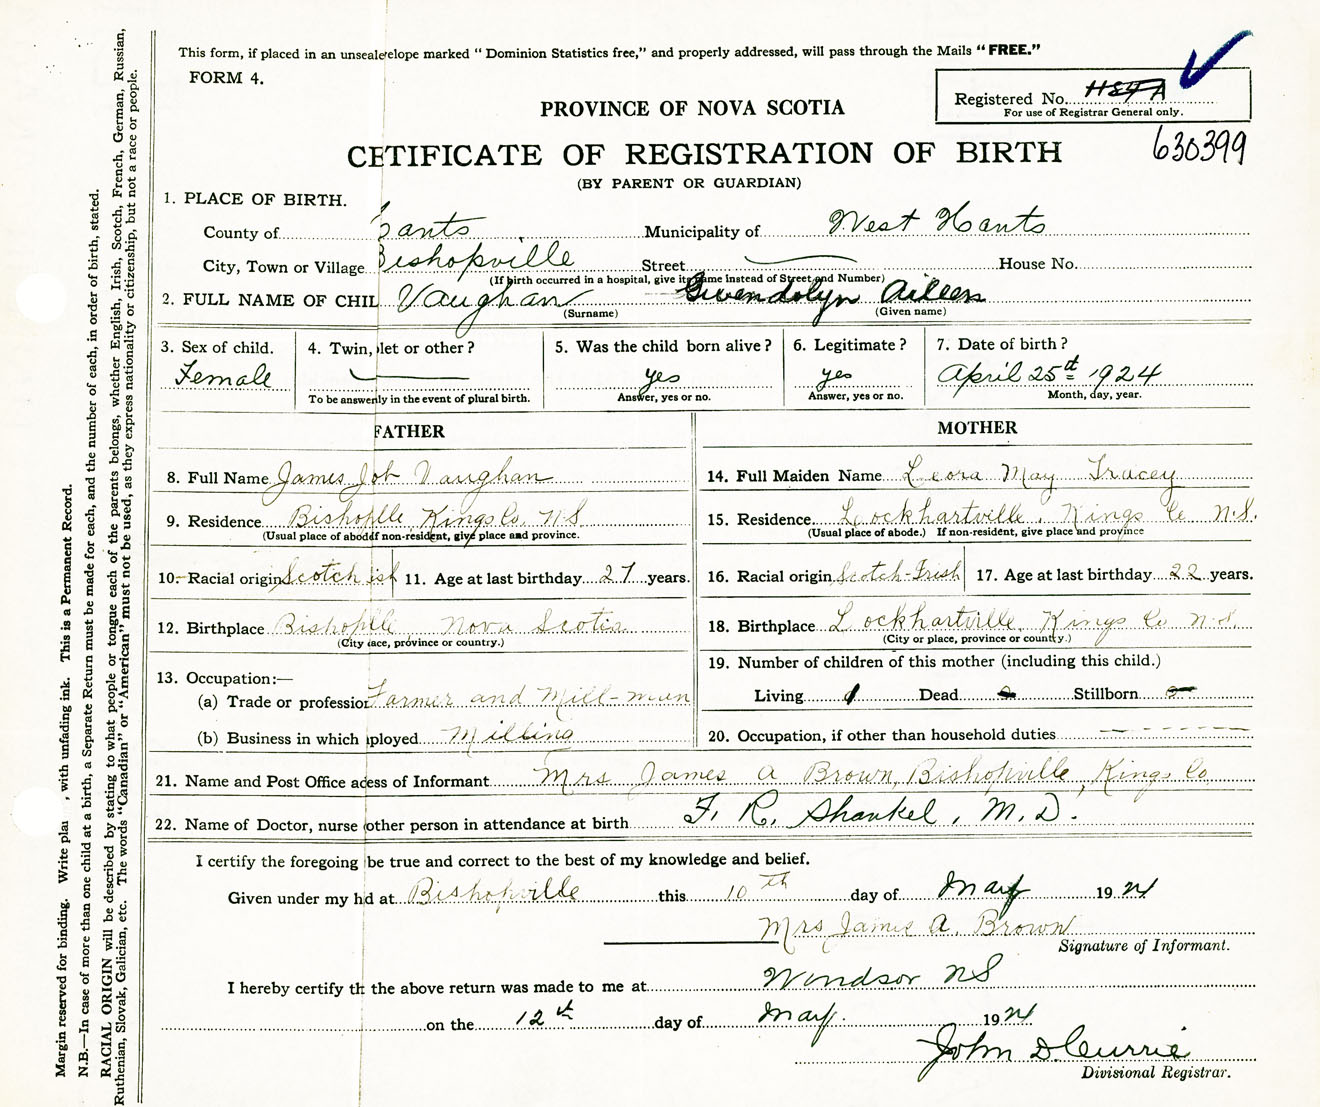 This form, if placed in an unsealelope marked "Dominion Statistics free," and properly addressed, will pass through the Mails "FREE."
FORM 4.
Registered No.
For use of Registrar General only.
PROVINCE OF NOVA SCOTIA
630399
CETIFICATE OF REGISTRATION OF BIRTH
(BY PARENT OR GUARDIAN)
1. PLACE OF BIRTH.
County of ants Municipality of West Hants
City, Town or Village Bishopville Street House No.
(If birth occurred in a hospital, give its name instead of Street and Number)
2. FULL NAME OF CHIL Vaughan Gwendolyn Aileen
(Surname) (Given name)
3. Sex of child. 4. Twin, let or other? 5. Was the child born alive? 6. Legitimate? 7. Date of birth?
Female yes yes April 25th 1924
To be answerly in the event of plural birth. Answer, yes or no. Answer, yes or no. Month, day, year.
FATHER MOTHER
8. Full Name James Job Vaughan 14. Full Maiden Name Leora May Tracey
9. Residence Bishoplle, Kings Co, N.S. 15. Residence Lockhartville, Kings Co N.S.
(Usual place of abodef non-resident, give place and province. (Usual place of abode.) If non-resident, give place and province
10. Racial origin Scotch ish 11. Age at last birthday 27 years. 16. Racial origin Scotch-Irish 17. Age at last birthday 22 years.
12. Birthplace Bishoplle, Nova Scotia 18. Birthplace Lockhartville, Kings Co N.S.
(City lace, province or country.) (City or place, province or country.)
19. Number of children of this mother (including this child.)
13. Occupation:—
(a) Trade or profession Farmer and Mill-man Living 1 Dead Stillborn
(b) Business in which ployed Milling 20. Occupation, if other than household duties
21. Name and Post Office adess of Informant Mrs James A Brown, Bishopville, Kings Co
22. Name of Doctor, nurse other person in attendance at birth F. R. Shankel, M.D.
I certify the foregoing be true and correct to the best of my knowledge and belief.
Given under my hd at Bishopville this 10th day of May 1924
Mrs James A. Brown
Signature of Informant.
I hereby certify th the above return was made to me at Windsor NS
on the 12th day of May. 1924
John D. Currie
Divisional Registrar.
Margin reserved for binding. Write plai , with unfading ink. This is a Permanent Record.
N.B.—In case of more than one child at a birth, a Separate Return must be made for each, and the number of each, in order of birth, stated.
RACIAL ORIGIN will be described by stating to what people or tongue each of the parents belongs, whether English, Irish, Scotch, French, German, Russian,
Ruthenian, Slovak, Galician, etc. The words "Canadian" or "American" must not be used, as they express nationality or citizenship, but not a race or people.